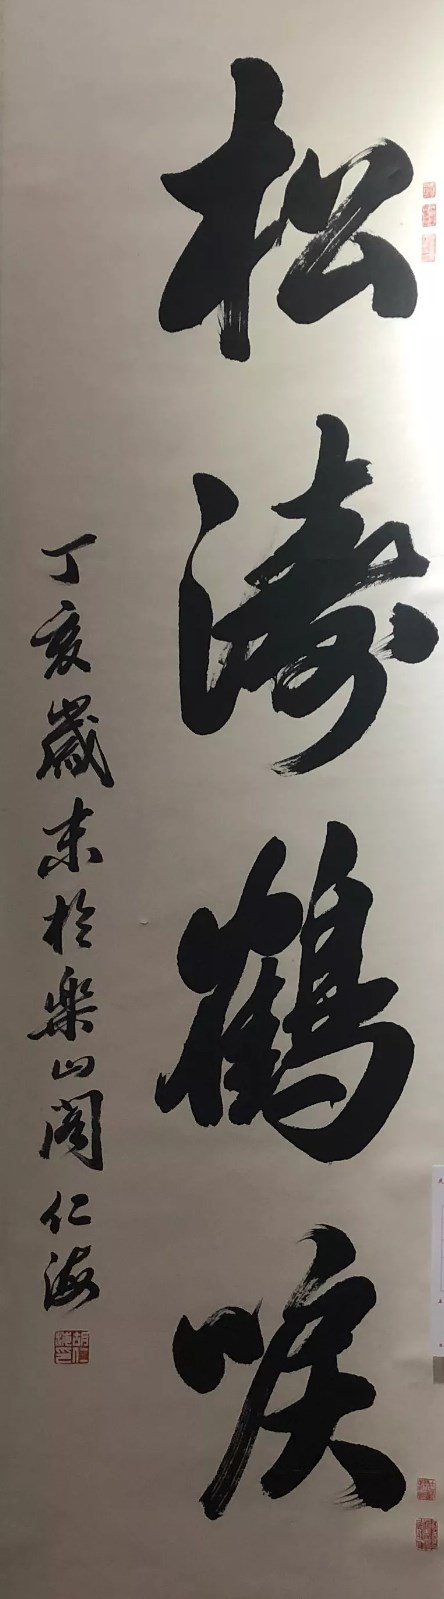 松濤鶴唳
丁亥歲末於樂山閣仁海